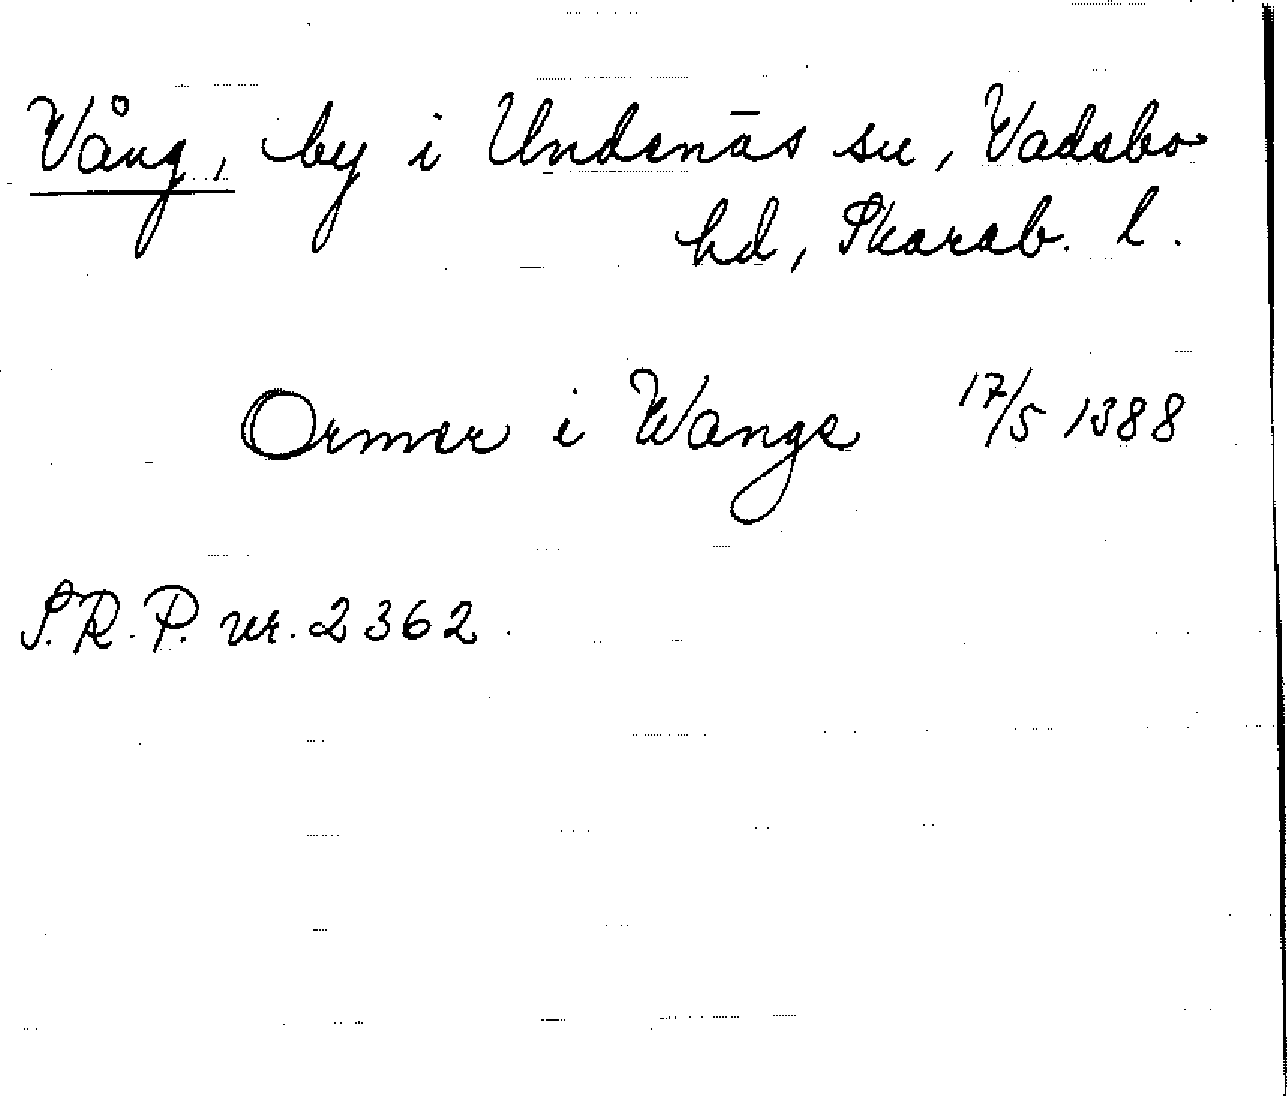 Vång, by i Undenäs sn, Vadsbo
hd, Skarab. l.
Ormer i Wange 17/5 1388
S.R.P. nr. 2362.